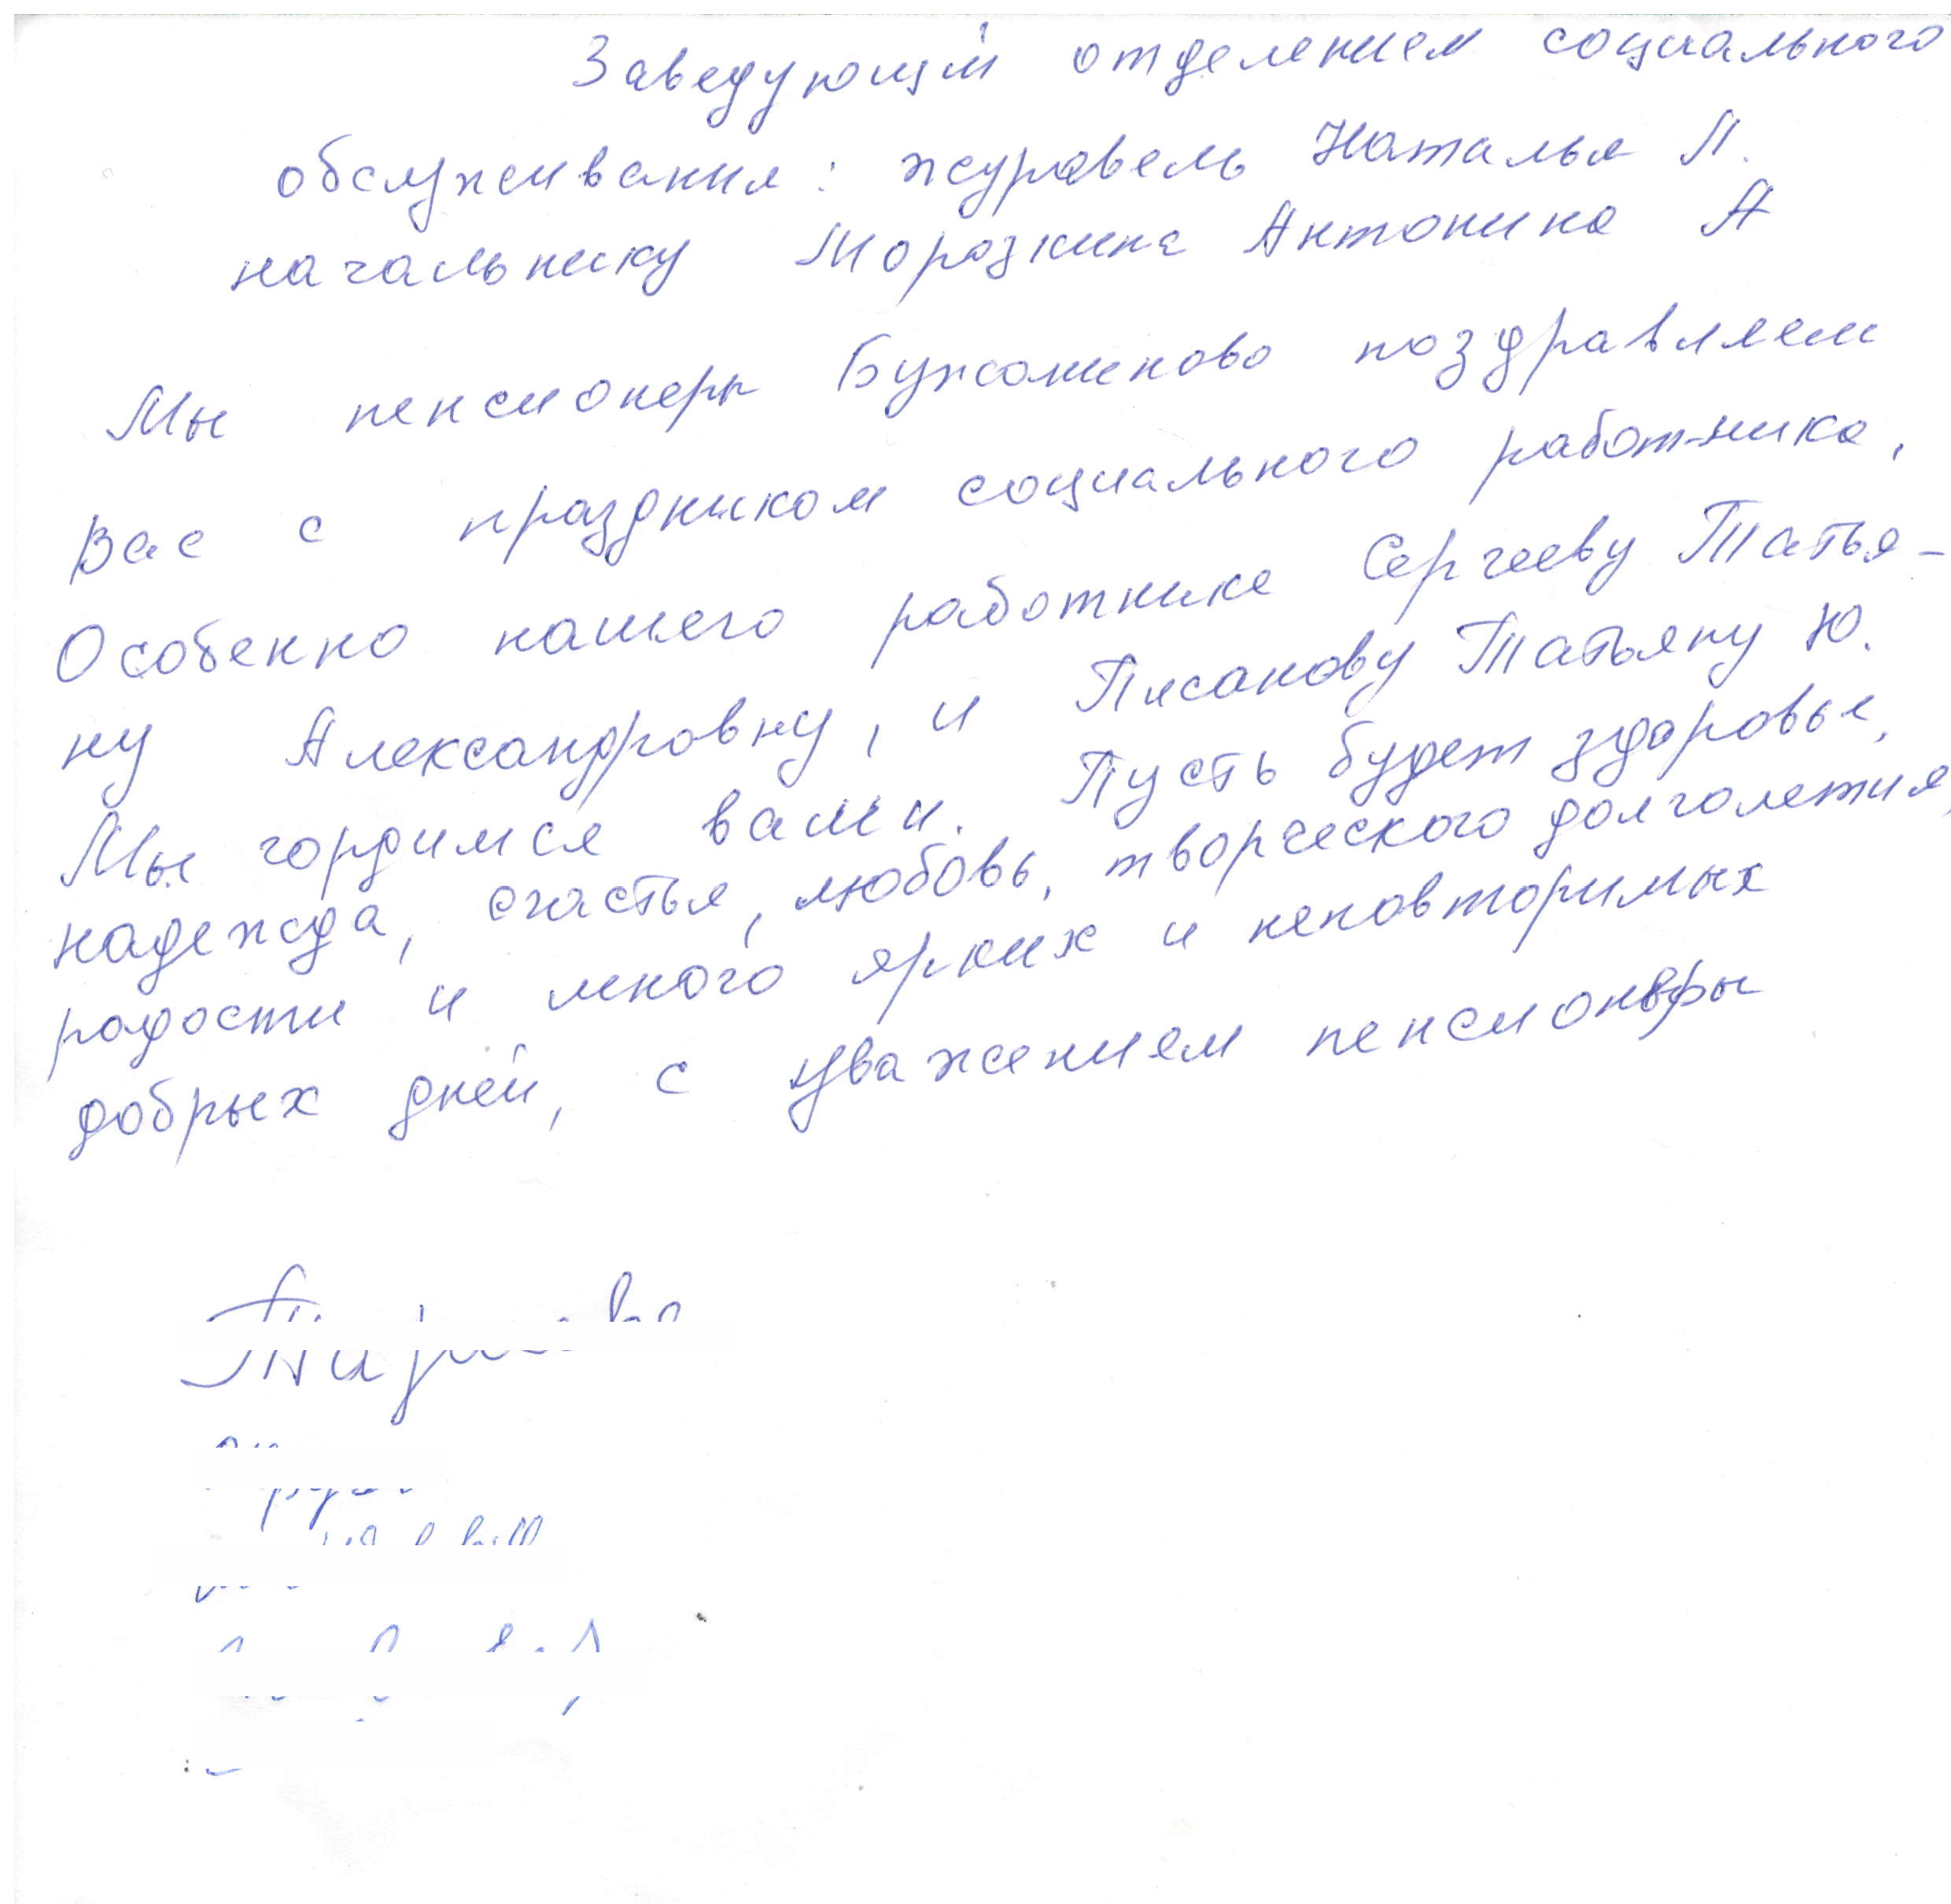 Заведующий отделением социального
обслуживания: журавель Наталья Л.
начальнику Морозкина Антонина А
Мы пенсионеры Бужаниново поздравляем
Вас с праздником социального работника,
Особенно нашего работника Сергееву Татья-
ну Александровну, и Писанову Татьяну Ю.
Мы гордимся вами. Пусть будет здоровье,
надежда, счастья, любовь, творческого долголетия,
радости и много ярких и неповторимых
добрых дней, с уважением пенсионеры